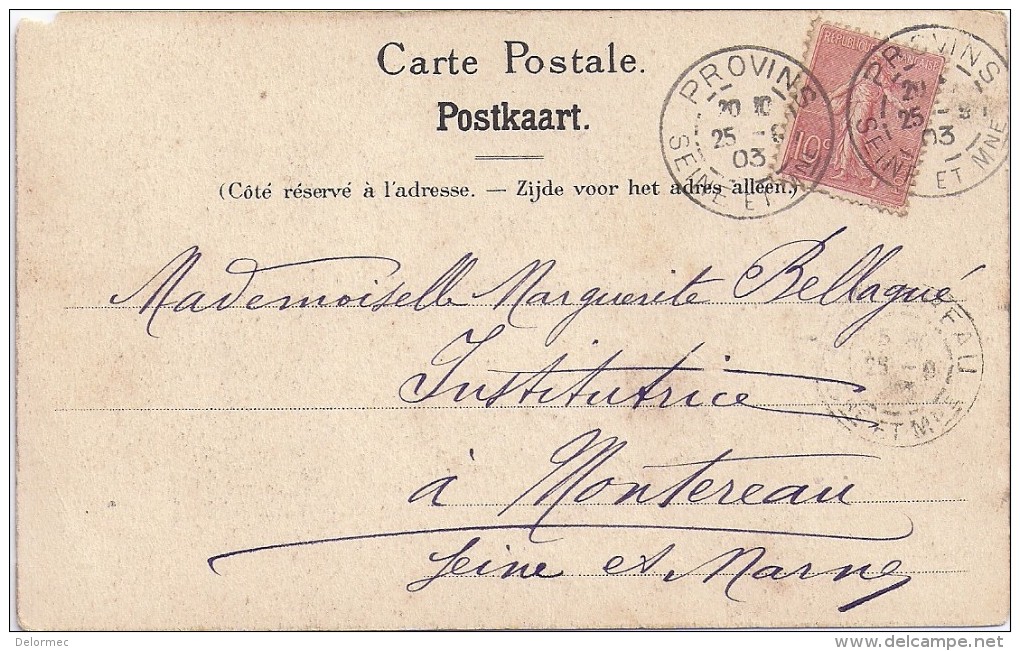 Carte Postale.
Postkaart.
(Côté réservé à l'adresse. — Zijde voor het adres alleen.)
REPUBLIQUE FRANÇAISE
10c
PROVINS
25
03
SEINE ET MNE
PROVINS
25
03
SEINE ET MNE
Mademoiselle Marguerite Bellagué
Institutrice
à Montereau
Seine et Marne
EAU
25
ET MNE
Delormec
www.delcampe.net